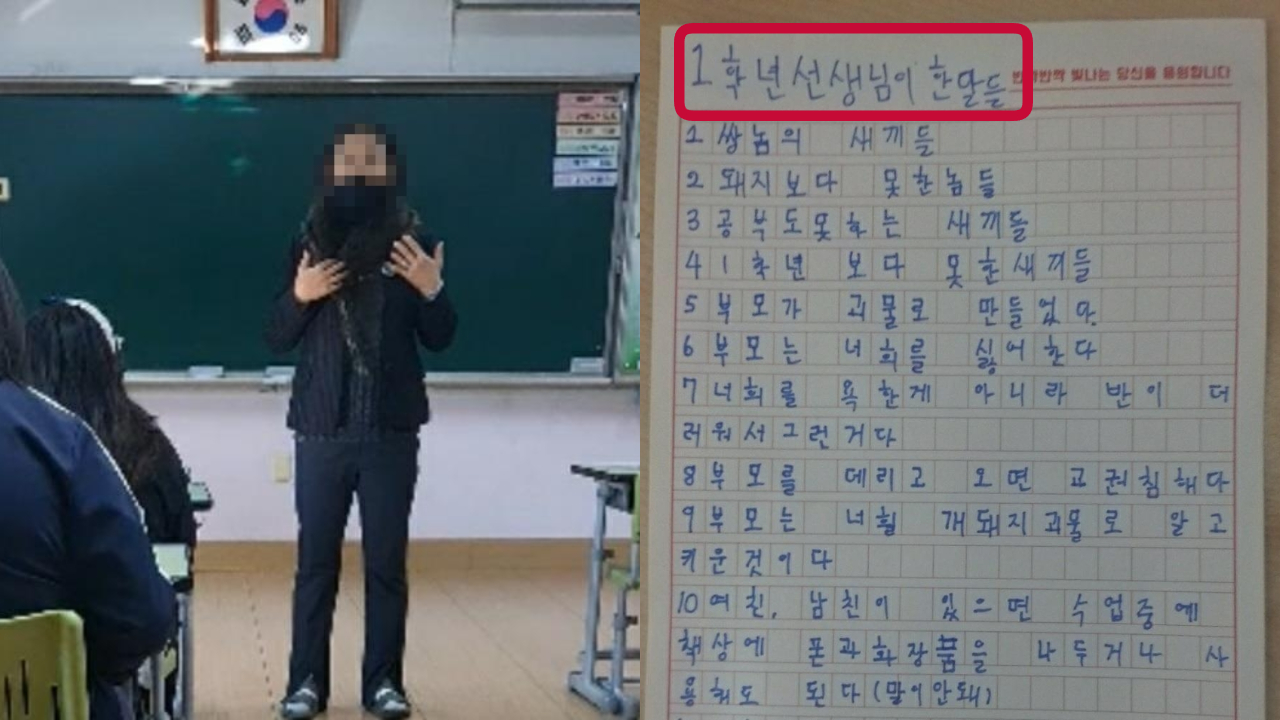 1학년선생님이 한말들
반짝반짝 빛나는 당신을 응원합니다
1 쌍놈의 새끼들
2 돼지보다 못한놈들
3 공부도못하는 새끼들
4 1학년 보다 못한새끼들
5 부모가 괴물로 만들었다.
6 부모는 너희를 싫어한다
7 너희를 욕한게 아니라 반이 더
러워서그런거다
8 부모를 데리고 오면 교권침해다
9 부모는 너흴 개돼지괴물로 알고
키운것이다
10 여친, 남친이 있으면 수업중에
책상에 폰과화장품을 나두거나 사
용해도 된다(말이안돼)